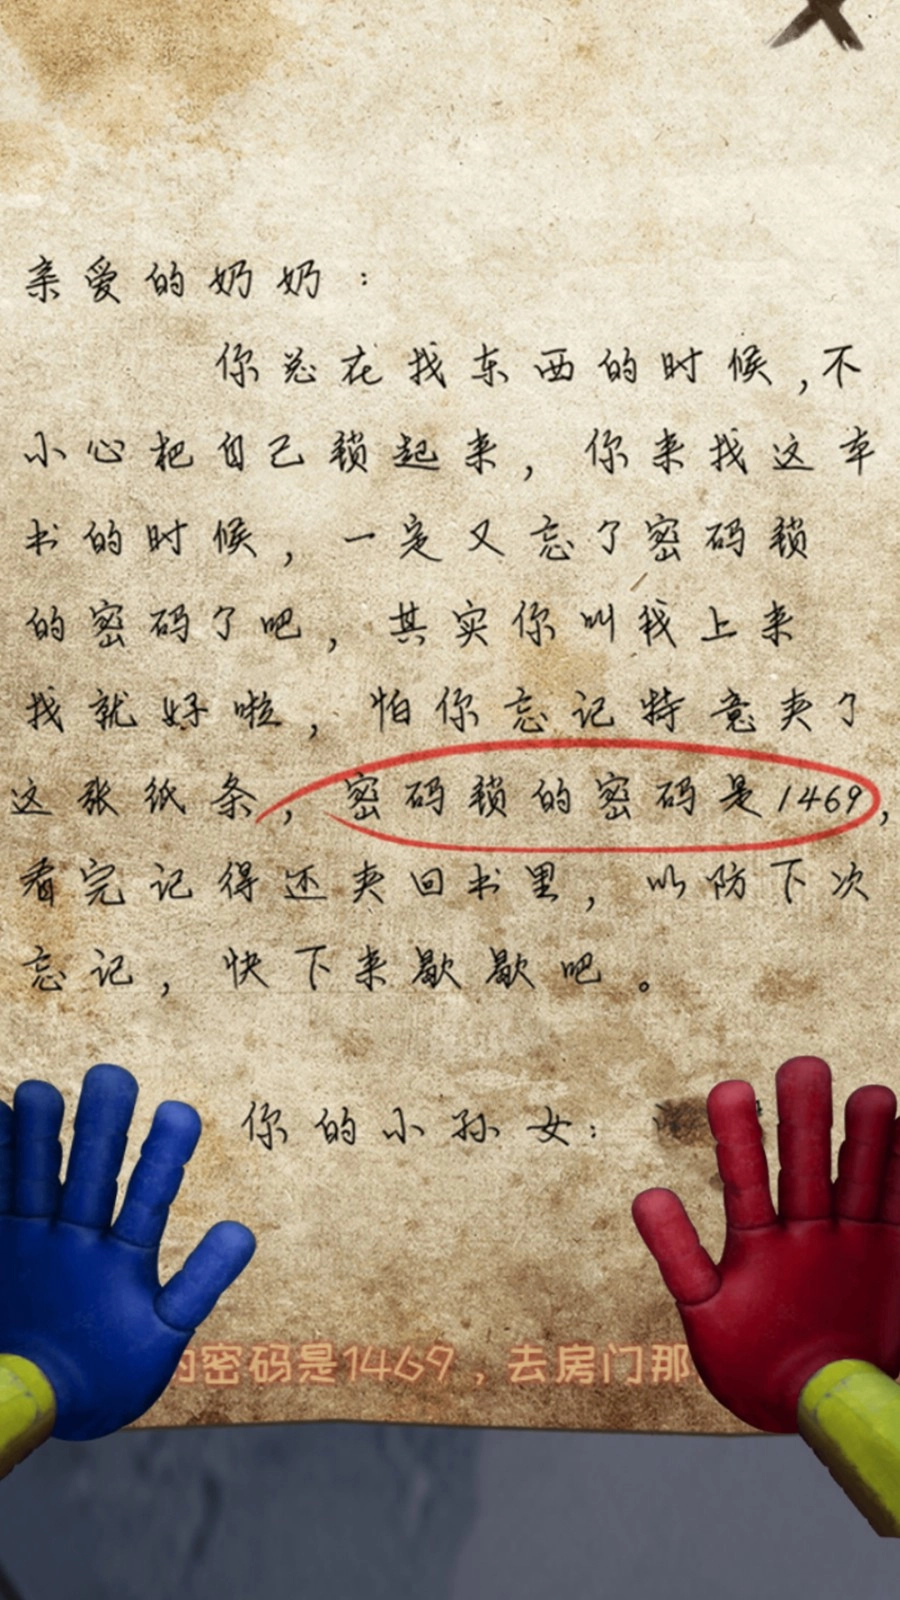 亲爱的奶奶：
你总在找东西的时候,不
小心把自己锁起来,你来找这本
书的时候,一定又忘了密码锁
的密码了吧,其实你叫我上来
找就好啦,怕你忘记特意夹了
这张纸条,密码锁的密码是1469,
看完记得还夹回书里,以防下次
忘记,快下来歇歇吧。
你的小孙女：
的密码是1469，去房门那